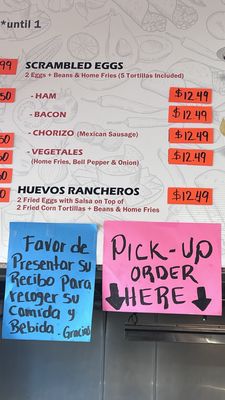 *until 1
99
SCRAMBLED EGGS
2 Eggs + Beans & Home Fries (5 Tortillas Included)
50
- HAM
$12.49
- BACON
$12.49
- CHORIZO (Mexican Sausage)
$12.49
- VEGETALES
$12.49
(Home Fries, Bell Pepper & Onion)
HUEVOS RANCHEROS
$12.49
2 Fried Eggs with Salsa on Top of
2 Fried Corn Tortillas + Beans & Home Fries
Favor de
Presentar su
Recibo Para
recoger su
Comida y
Bebida - Gracias
PICK-UP
ORDER
HERE